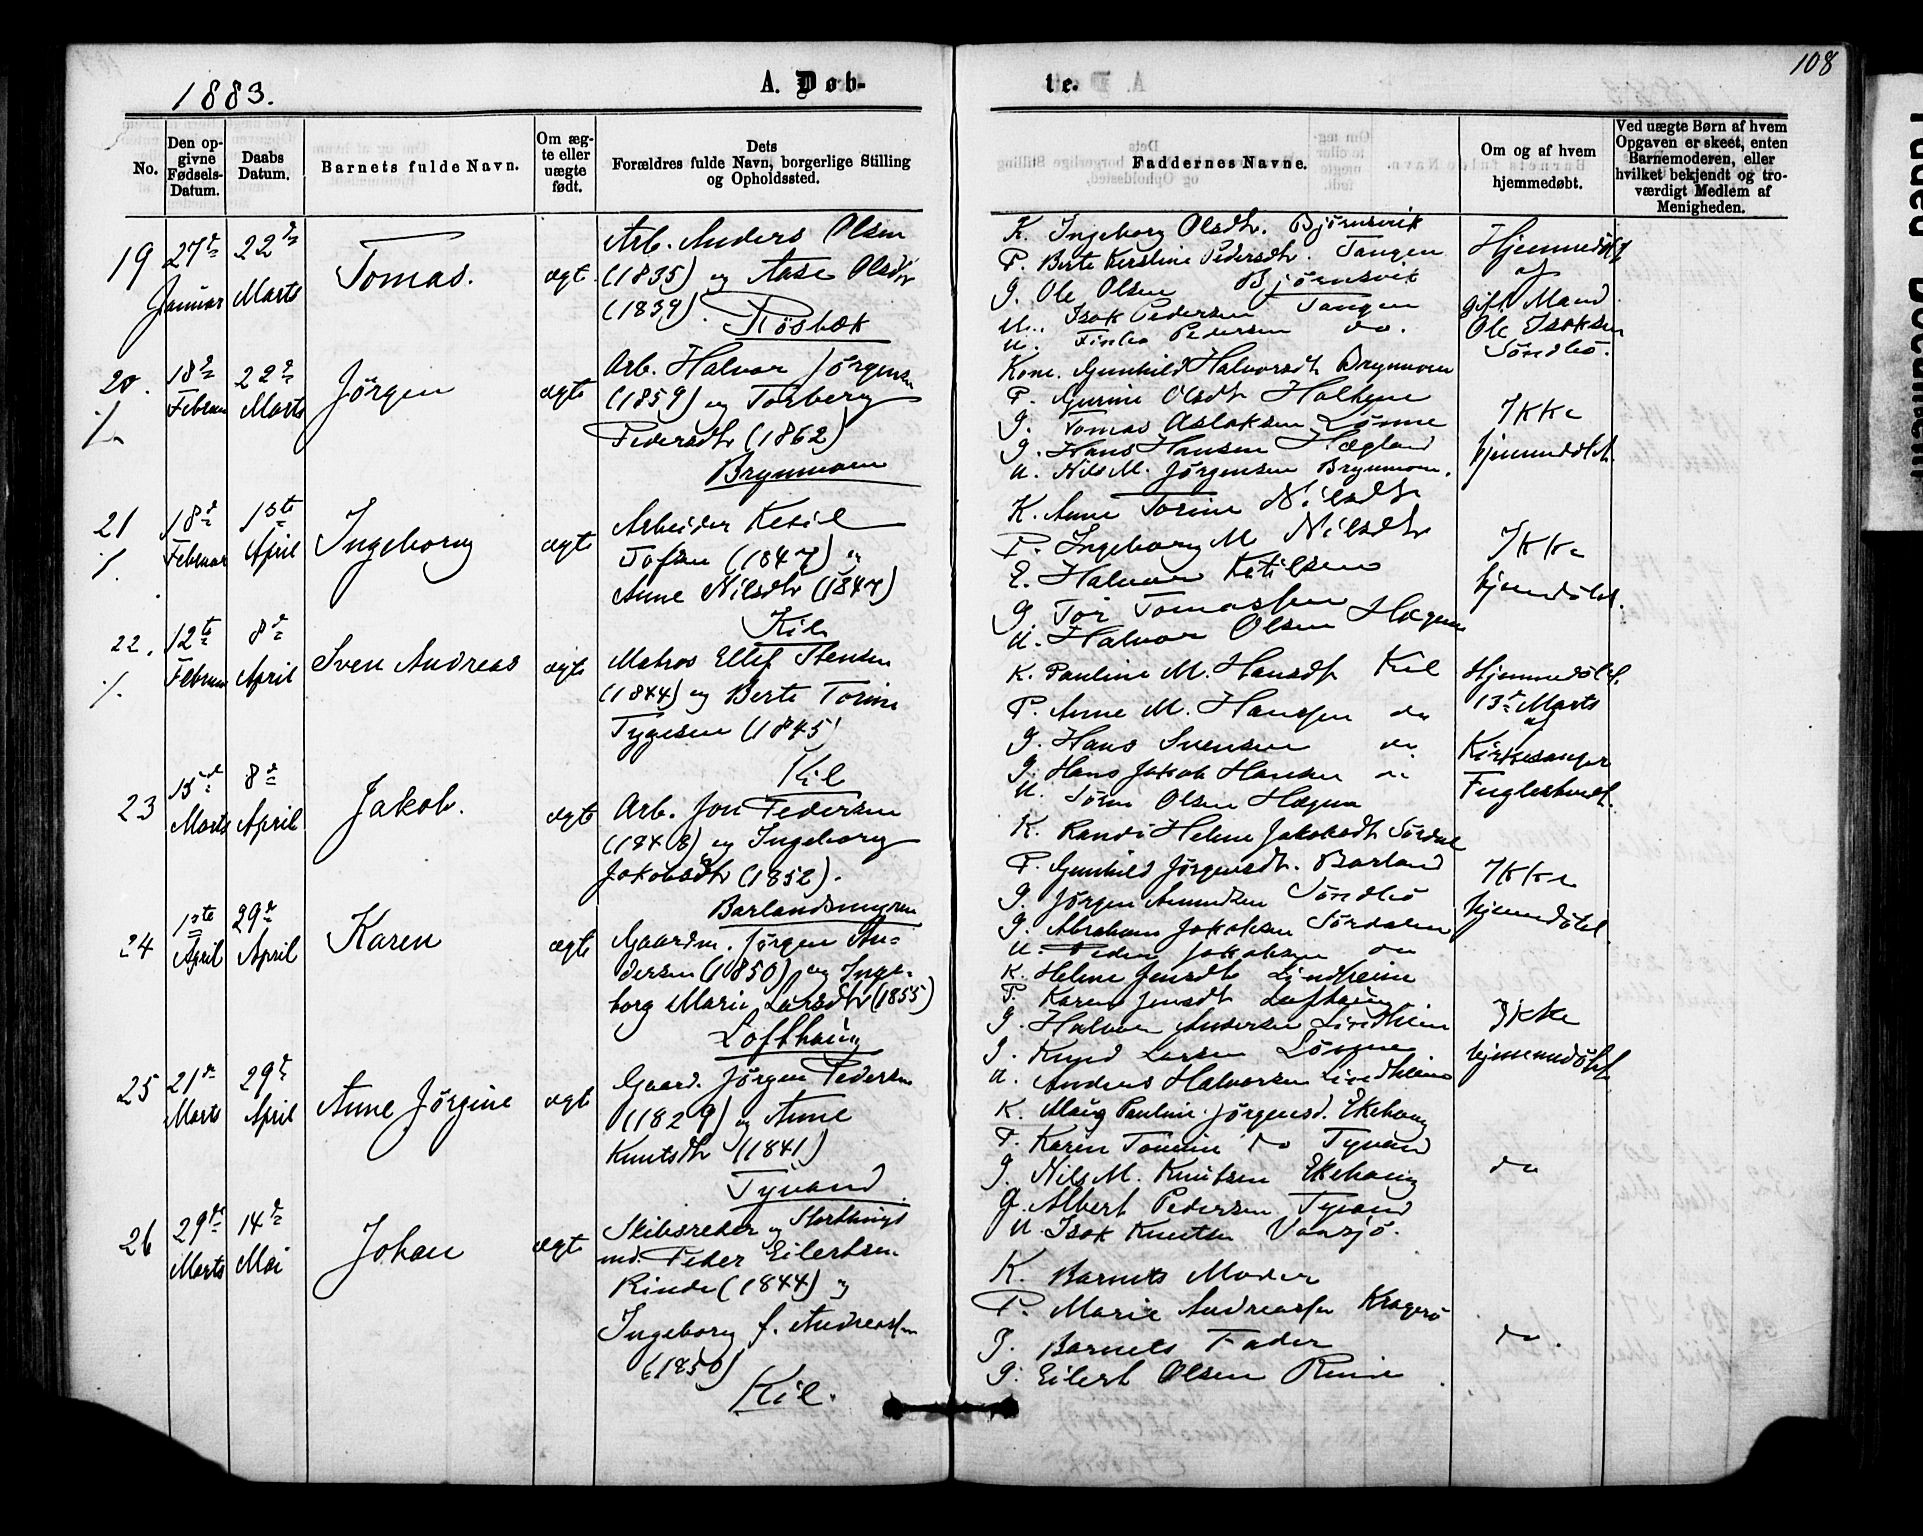 108
1883.
A. Døb-
te.
No.
Den op-
givne
Fødsels-
Datum.
Daabs
Datum.
Barnets fulde Navn.
Om æg-
te eller
uægte
født.
Dets
Forældres fulde Navn, borgerlige Stilling
og Opholdssted.
Faddernes Navne.
Om og af hvem
hjemmedøbt.
Ved uægte Børn af hvem
Opgaven er skeet, enten
Barnemoderen, eller
hvilket bekjendt og tro-
værdigt Medlem af
Menigheden.
19
27de
Januar
22de
Marts
Tomas.
ægt.
Arb. Anders Olsen
(1835) og Aase Olsdtr
Røsbæk
K. Ingeborg Olsdtr. Bjørnsvik
P. Berte Kerstine Pedersdtr. Tangen
G. Ole Olsen Bjørnsvik
U. Isak Pedersen Tangen
U. Pedersen do.
Hjemmedøbt
af
gift Mand
Ole Isaksen
Søndbø.
20.
18de
Februar
22de
Marts
Jørgen
ægte
Arb. Halvor Jørgensen
(1859) og Torberg
Pedersdtr (1862)
Brynmoen
Kone. Gunhild Halvorsdtr Brynmoen
P. Gurine Olsdtr
G. Tomas Aslaksen Lønne
G. Hans Hansen Hægland
U. Nils M. Jørgensen Brynmoen.
Ikke
hjemmedøbt.
21
18de
Februar
1ste
April
Ingeborg
ægte
Arbeider Ketil
(1847) og
Anne Nilsdtr (1847)
Kil
K. Anne Torine Nilsdtr
P. Ingeborg M Nilsdtr
E. Halvor Ketilsen
G. Tor Tomassen
U. Halvor Olsen Hægna
Ikke
hjemmedøbt.
22.
12te
Februar
8de
April
Sven Andreas
ægte
Matros Ellef Stensen
(1844) og Berte Torine
Tygesen (1845)
Kil
K. Pauline M. Hansdtr Kil
P. Anne M. Hanssen do
G. Hans Svensen do
G. Hans Jakob Hansen do
U. Søren Olsen Hægna
Hjemmedøbt.
13de Marts
af
Kirkesanger
Fuglestvedt.
23
15de
Marts
8de
April
Jakob.
ægte
Arb. Jon Pedersen
(1848) og Ingeborg
Jakobsdtr (1852).
Barlandsmyren
K. Randi Helene Jakobsdtr Sørdal
P. Gunhild Jørgensdtr. Barland
G. Jørgen Amundsen Søndbø
G. Abraham Jakobsen Sørdalen
U. Peder Jakobsen do
Ikke
hjemmedøbt.
24
1ste
April
29de
April
Karen
ægte
Gaardm. Jørgen An-
dersen (1850) og Inge-
borg Marie Larsdtr (1855)
Lofthaug
K. Helene Jensdtr Lindheim
P. Karen Jensdtr Lofthaug
G. Halvor Andersen Lindheim
G. Knud Larsen Lønne
U. Anders Halvorsen Lindheim
Ikke
hjemmedøbt
25
21de
Marts
29de
April
Anne Jørgine
ægt
Gaard. Jørgen Pedersen
(1829) og Anne
Knutsdtr (1841)
Tyvand
K. Maug Pauline Jørgensd. Ekehaug
P. Karen Tomine do Tyvand
G. Nils M. Knutsen Ekehaug
G. Albert Pedersen Tyvand
U. Isak Knutsen Vaasjø.
do
26
29de
Marts
14de
Mai
Johan
ægte
Skibsreder og Storthings
md. Peder Eilertsen
Rinde (1844) og
Ingeborg f. Andreassen
(1850)
Kil.
K. Barnets Moder
P. Marie Andreassen Kragerø
G. Barnets Fader
G. Eilert Olsen
do.